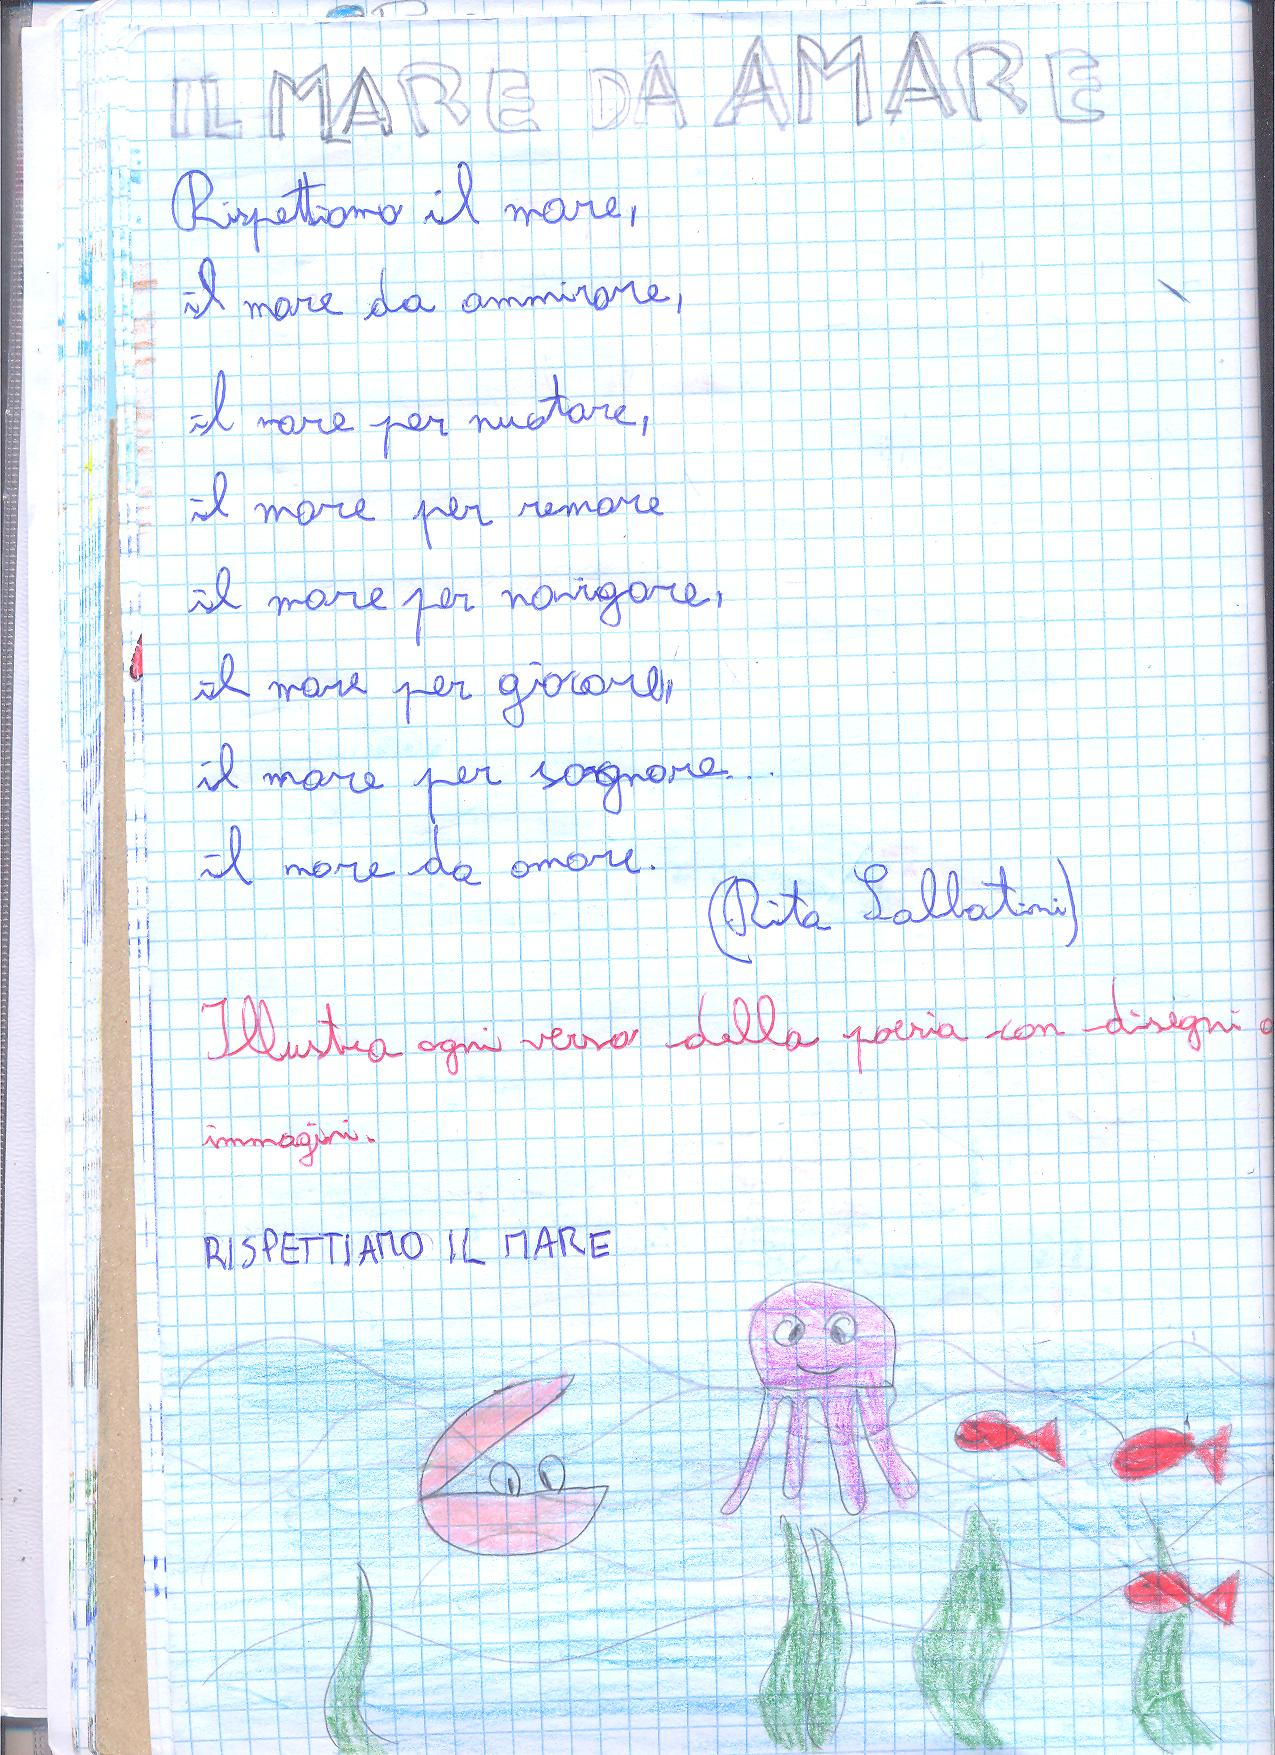 IL MARE DA AMARE
Rispettiamo il mare,
il mare da ammirare,
il mare per nuotare,
il mare per remare
il mare per navigare,
il mare per giocare,
il mare per sognare...
il mare da amare.
(Rita Sabbatini)
Illustra ogni verso della poesia con disegni o
immagini.
RISPETTIAMO IL MARE